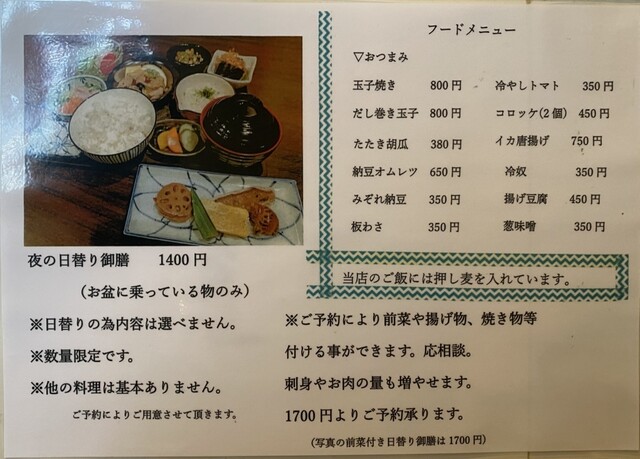 フードメニュー
▽おつまみ
玉子焼き 800円 冷やしトマト 350円
だし巻き玉子 800円 コロッケ(2個) 450円
たたき胡瓜 380円 イカ唐揚げ 750円
納豆オムレツ 650円 冷奴 350円
みぞれ納豆 350円 揚げ豆腐 450円
板わさ 350円 葱味噌 350円
当店のご飯には押し麦を入れています。
夜の日替り御膳 1400円
（お盆に乗っている物のみ）
※日替りの為内容は選べません。
※数量限定です。
※他の料理は基本ありません。
ご予約によりご用意させて頂きます。
※ご予約により前菜や揚げ物、焼き物等
付ける事ができます。応相談。
刺身やお肉の量も増やせます。
1700円よりご予約承ります。
（写真の前菜付き日替り御膳は1700円）